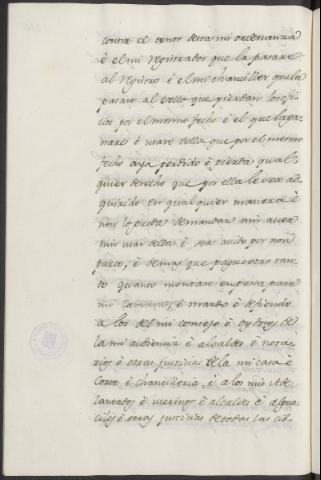 contra el tenor desta mi ordenanza
è el mi registrador que la pasare
al registro è el mi chanciller que la
pasare al sello que pierdan los ofi-
cios por el mesmo fecho è el que la ga-
nare è usare della que por el mesmo
fecho aya perdido è pierda qual-
quier derecho que por ella le sea ad-
quirido en qual quier manera è
non lo pueda demandar nin aver
nin usar della è sea avido por non
parte, è demas que pague otro tan-
to quanto montare en pena para
mi camara, è mando è defiendo
a los del mi consejo è oydores de
la mi audiencia è alcaldes è nota-
rios è otras justicias de la mi casa è
corte è chancilleria, è a los mis Ade-
lantados è merinos è alcaldes è algua-
ciles è otras justicias de todas las cib-